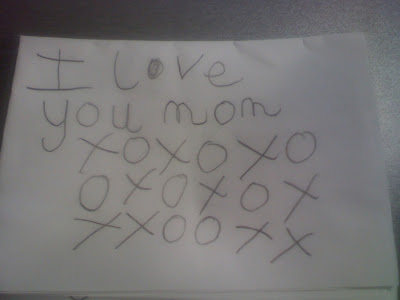 I love
you mom
XOXOXO
OXOXOX
XXOOXX